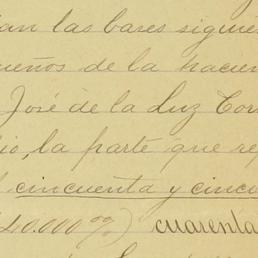 ian las bases siguie
ueños de la hacien
José de la Luz Cor
io, la parte que re
l cincuenta y cinco
40.000 00/) cuarenta